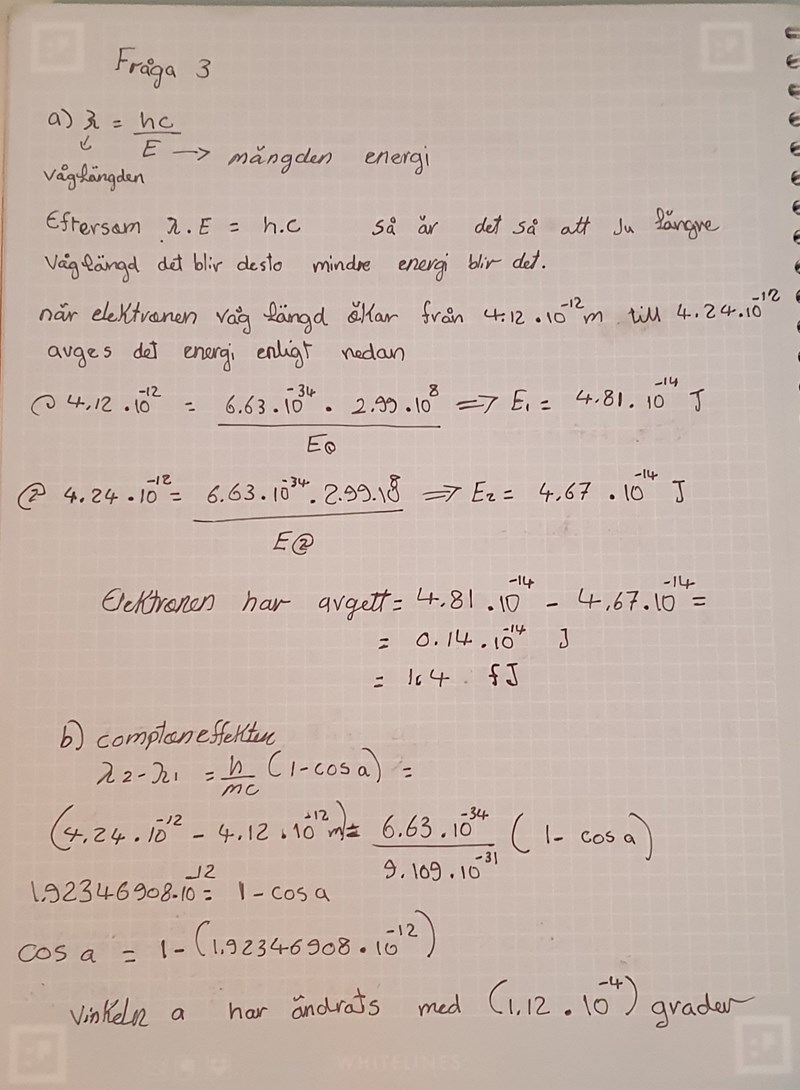 Fråga 3
a) λ = hc / E → mängden energi
↓
våglängden
Eftersom λ . E = h.c så är det så att Ju längre
våglängd det blir desto mindre energi blir det.
när elektronen våg längd ökar från 4.12 . 10^-12 m till 4.24 . 10^-12
avges det energi enligt nedan
① 4.12 . 10^-12 = 6.63 . 10^-34 . 2.99 . 10^8 / E① => E₁ = 4.81 . 10^-14 J
② 4.24 . 10^-12 = 6.63 . 10^-34 . 2.99 . 10^8 / E② => E₂ = 4,67 . 10^-14 J
Elektronen har avgett = 4.81 . 10^-14 - 4,67 . 10^-14 =
= 0.14 . 10^-14 J
= 1.4 fJ
b) comptoneffekten
λ2 - λ1 = h / mc (1 - cos a) =
(4.24 . 10^-12 - 4.12 . 10^-12 m) = 6.63 . 10^-34 / 9.109 . 10^-31 (1 - cos a)
1.92346908 . 10^-12 = 1 - cos a
cos a = 1 - (1.92346908 . 10^-12)
Vinkeln a har ändrats med (1.12 . 10^-4) grader
WHITELINES